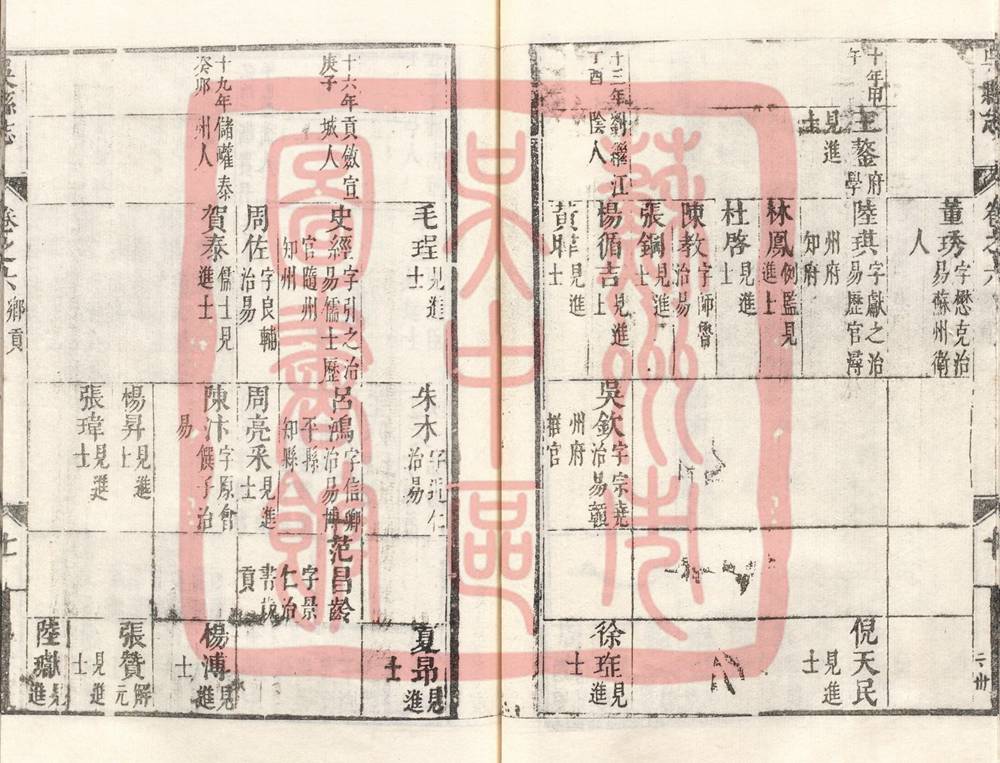 吳縣志
卷之六
董琇
字懋克治
易蘇州衛
人
十年甲
午
王鏊
府
學
見進
士
陸琪
字獻之治
易歷官潯
州府
知府
倪天民
見進
士
林鳳
例監見
進士
杜啓
見進
士
陳教
字師魯
治易
張鋼
見進
士
十三年
丁酉
劉纓
江
陰人
楊循吉
見進
士
吳欽
字宗堯
治易
州府
推官
徐珤
見進
士
黃暐
見進
士
毛珵
見進
士
朱木
字近仁
治易
夏昂
見進
士
十六年
庚子
貢斂
宣
城人
史經
字引之治
易儒士歷
官隨州
知州
呂鴻
字信卿
治易博
平縣
知縣
范昌齡
字景
仁治
書
貢
周佐
字良輔
治易
周亮采
見進
士
十九年
癸卯
儲巏
泰
州人
賀泰
儒士見
進士
陳汴
字原會
饌子治
易
楊溥
見進
士
楊昇
見進
士
張贊
解元
見進
張瑋
見進
士
陸巘
見進
吳縣志
卷之六
鄉貢
蘇州市
吳中區
圖書館